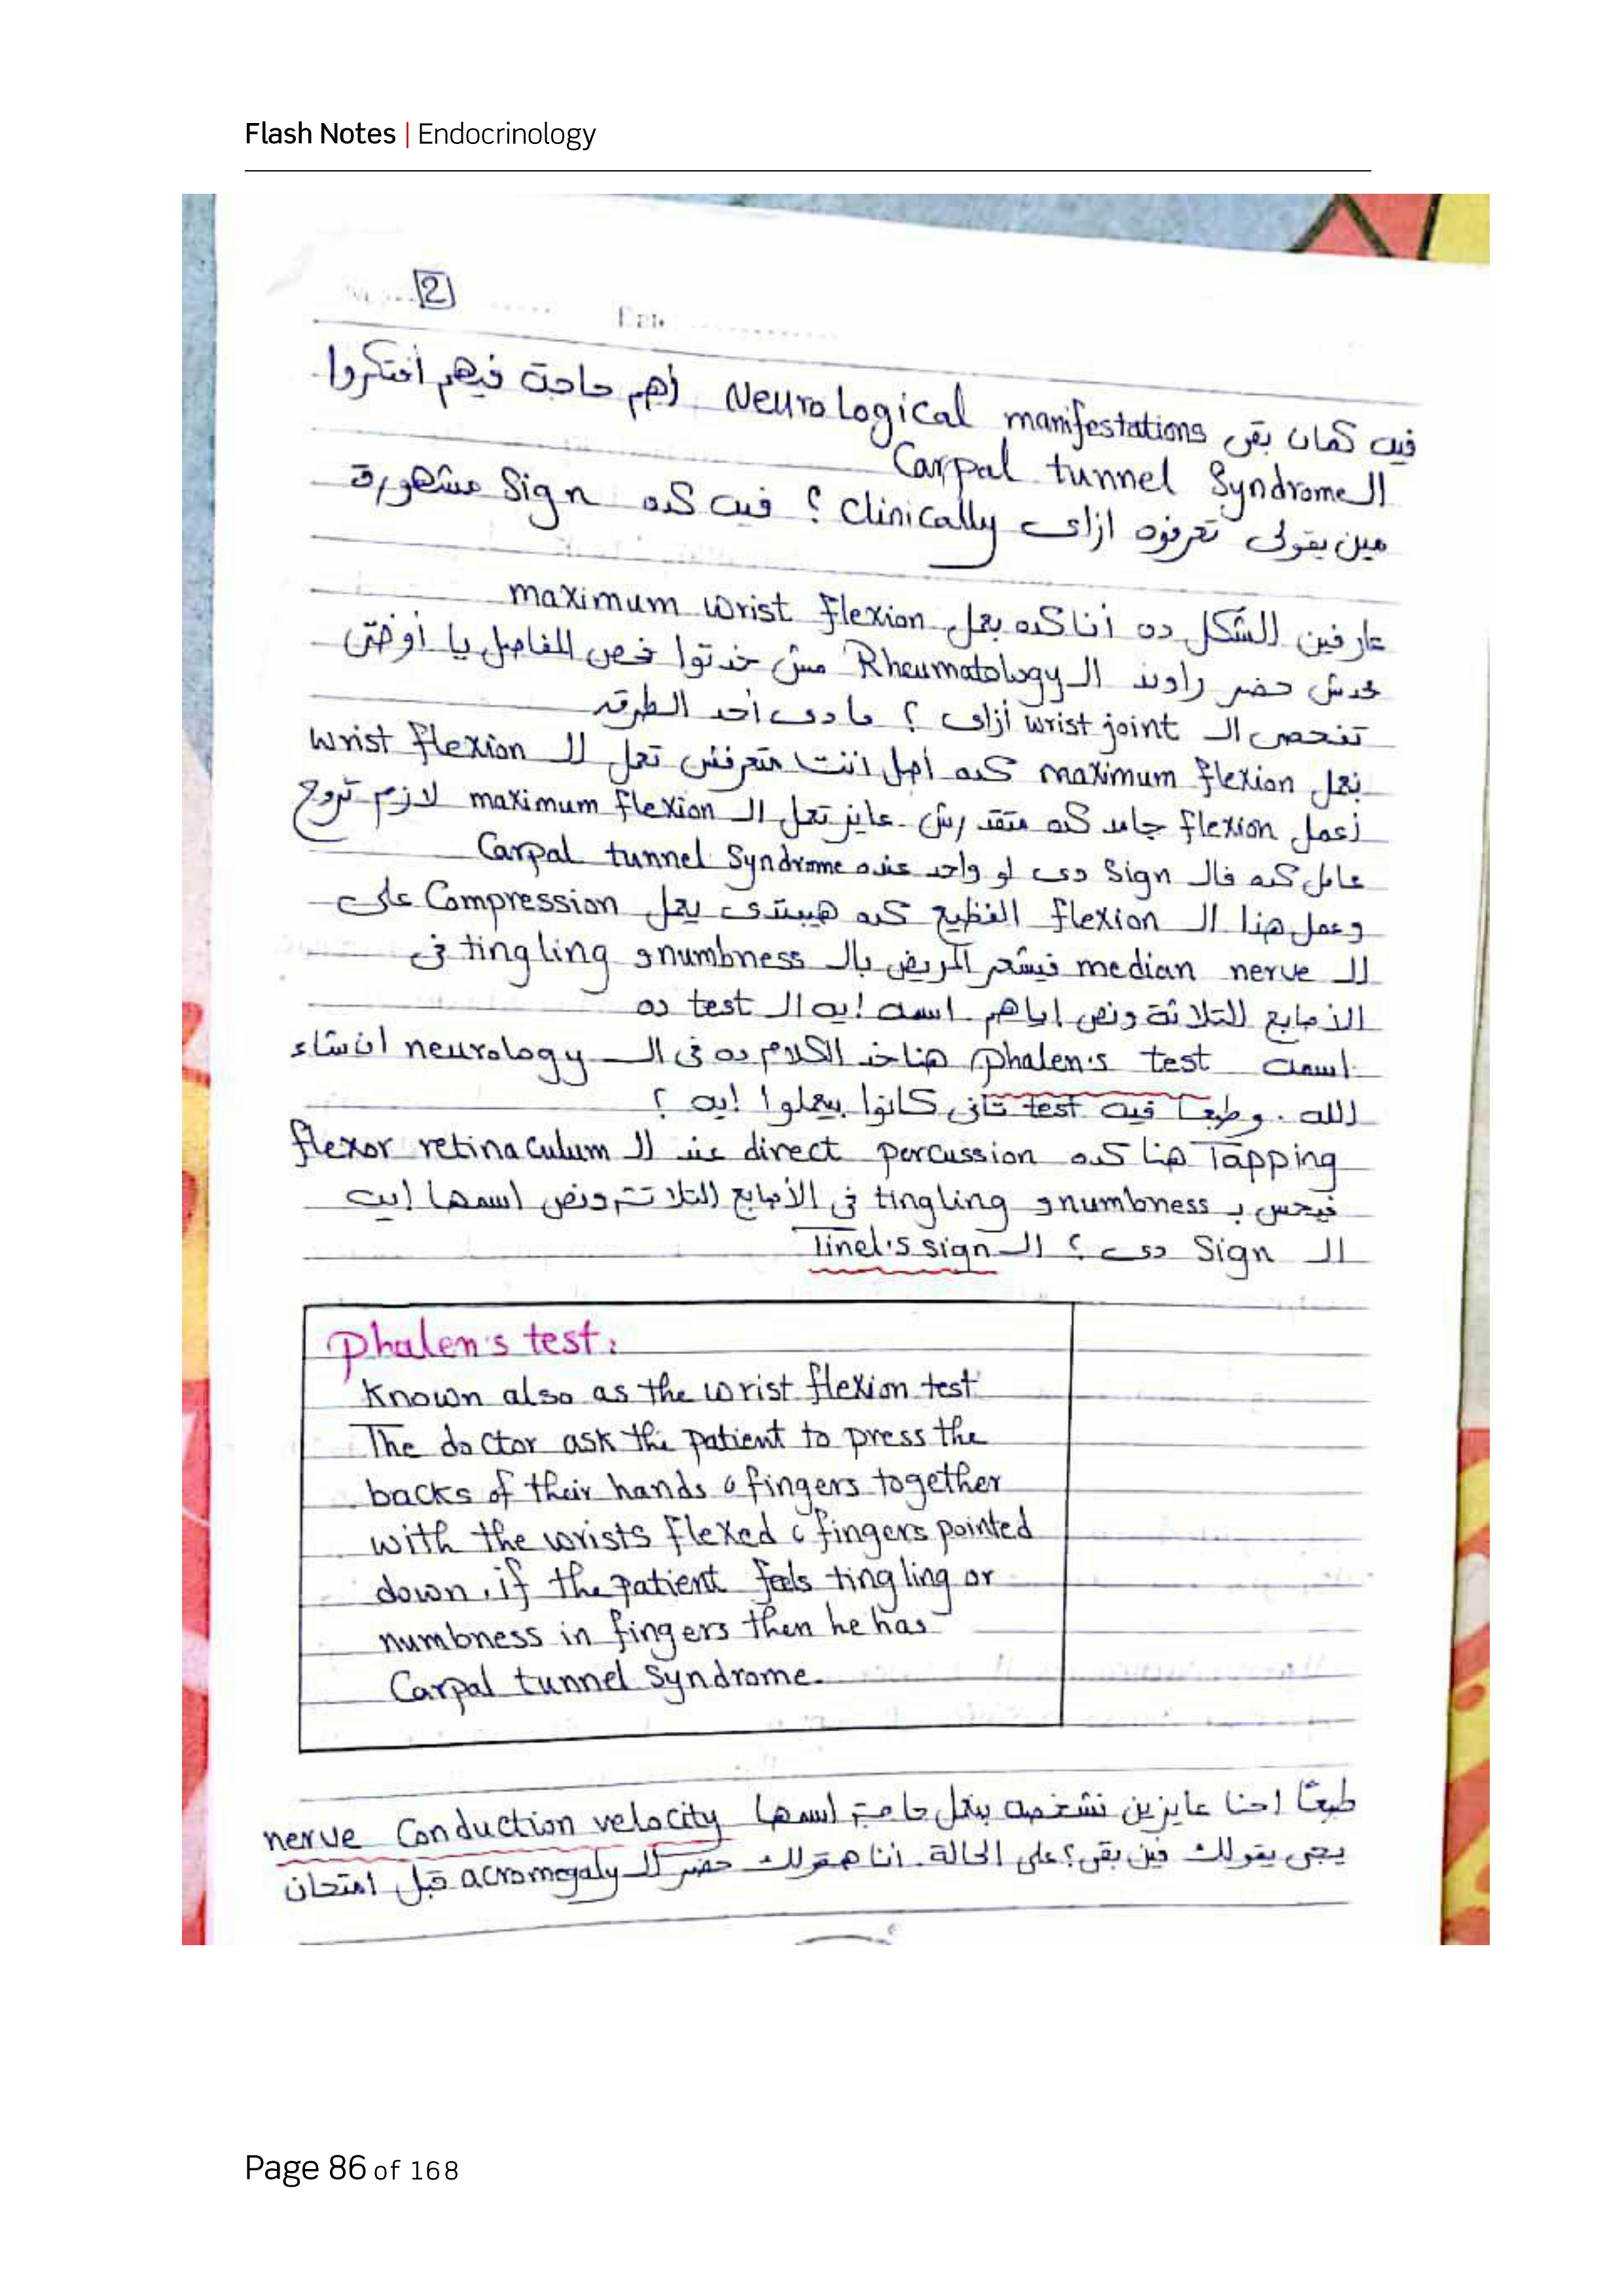 Flash Notes | Endocrinology
2
Date
فيه كمان بقى Neurological manifestations أهم حاجة فيهم افتكروا
ال Carpal tunnel Syndrome
مين يقولى تعرفوه ازاى clinically ؟ فيه كده Sign مشهورة
عارفين الشكل ده أنا كده بعمل maximum wrist flexion
محدش حضر راوند ال Rheumatology مش خدتوا فحص المفاصل يا
تفحص ال wrist joint أزاى ؟ ما دى أحد الطرق
نعمل maximum flexion كده أصل انت متعرفش تعمل ال wrist flexion
أعمل flexion جامد كده متقدرش. عايز تعمل ال maximum flexion لازم تروح
عامل كده فال Sign دى لو واحد عنده Carpal tunnel Syndrome
وعمل هنا ال flexion الفظيع كده هيبتدى يعمل Compression على
ال median nerve فيشعر المريض بال numbness و tingling فى
الأصابع التلاتة ونص اياهم. اسمه إيه ال test ده
اسمه phalen's test هناخد الكلام ده فى ال neurology ان شاء
الله. وطبعاً فيه test تانى كانوا بيعملوا إيه ؟
Tapping هنا كده direct percussion عند ال flexor retinaculum
فيحس ب numbness و tingling فى الأصابع التلاتة ونص اسمها إيه
ال Sign دى ؟ ال Tinel's sign
phalen's test:
Known also as the wrist flexion test
The doctor ask the patient to press the
backs of their hands & fingers together
with the wrists flexed & fingers pointed
down, if the patient feels tingling or
numbness in fingers then he has
Carpal tunnel Syndrome.
طبعاً احنا عايزين نشخصه بنعمل حاجة اسمها nerve Conduction velocity
يجى يقولك فين بقى؟ على الحالة. أنا هقولك حضر ال acromegaly قبل امتحان
Page 86 of 168